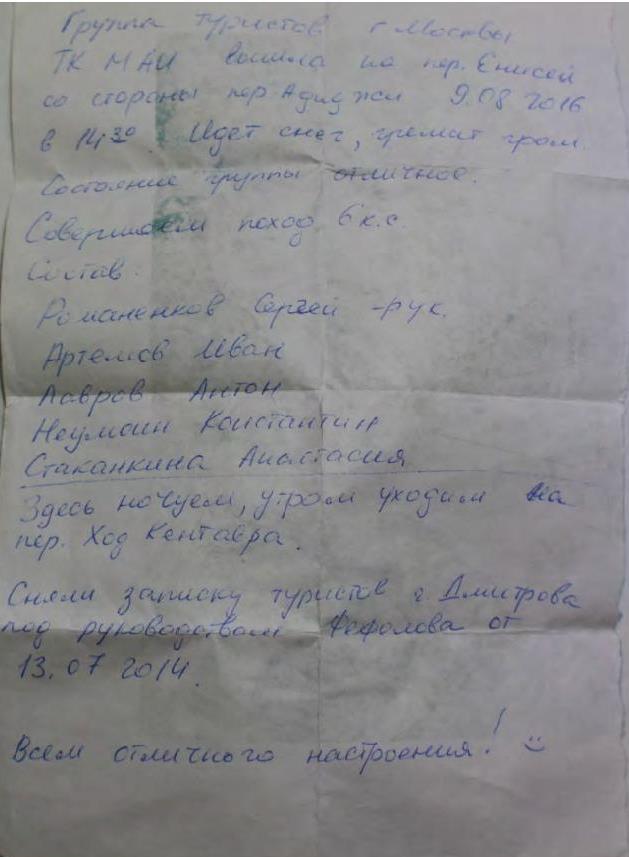 Группа туристов г Москвы
ТК МАИ вышла на пер. Енисей
со стороны пер Адиджи 9.08 2016
в 14 30 Идет снег, гремит гром.
Состояние группы отличное.
Совершаем поход 6 к.с.
Состав:
Романенков Сергей - рук.
Артемов Иван
Лавров Антон
Неумоин Константин
Стаканкина Анастасия
Здесь ночуем, утром уходим на
пер. Ход Кентавра.
Сняли записку туристов г. Дмитрова
под руководством Фефолова от
13.07 2014.
Всем отличного настроения!